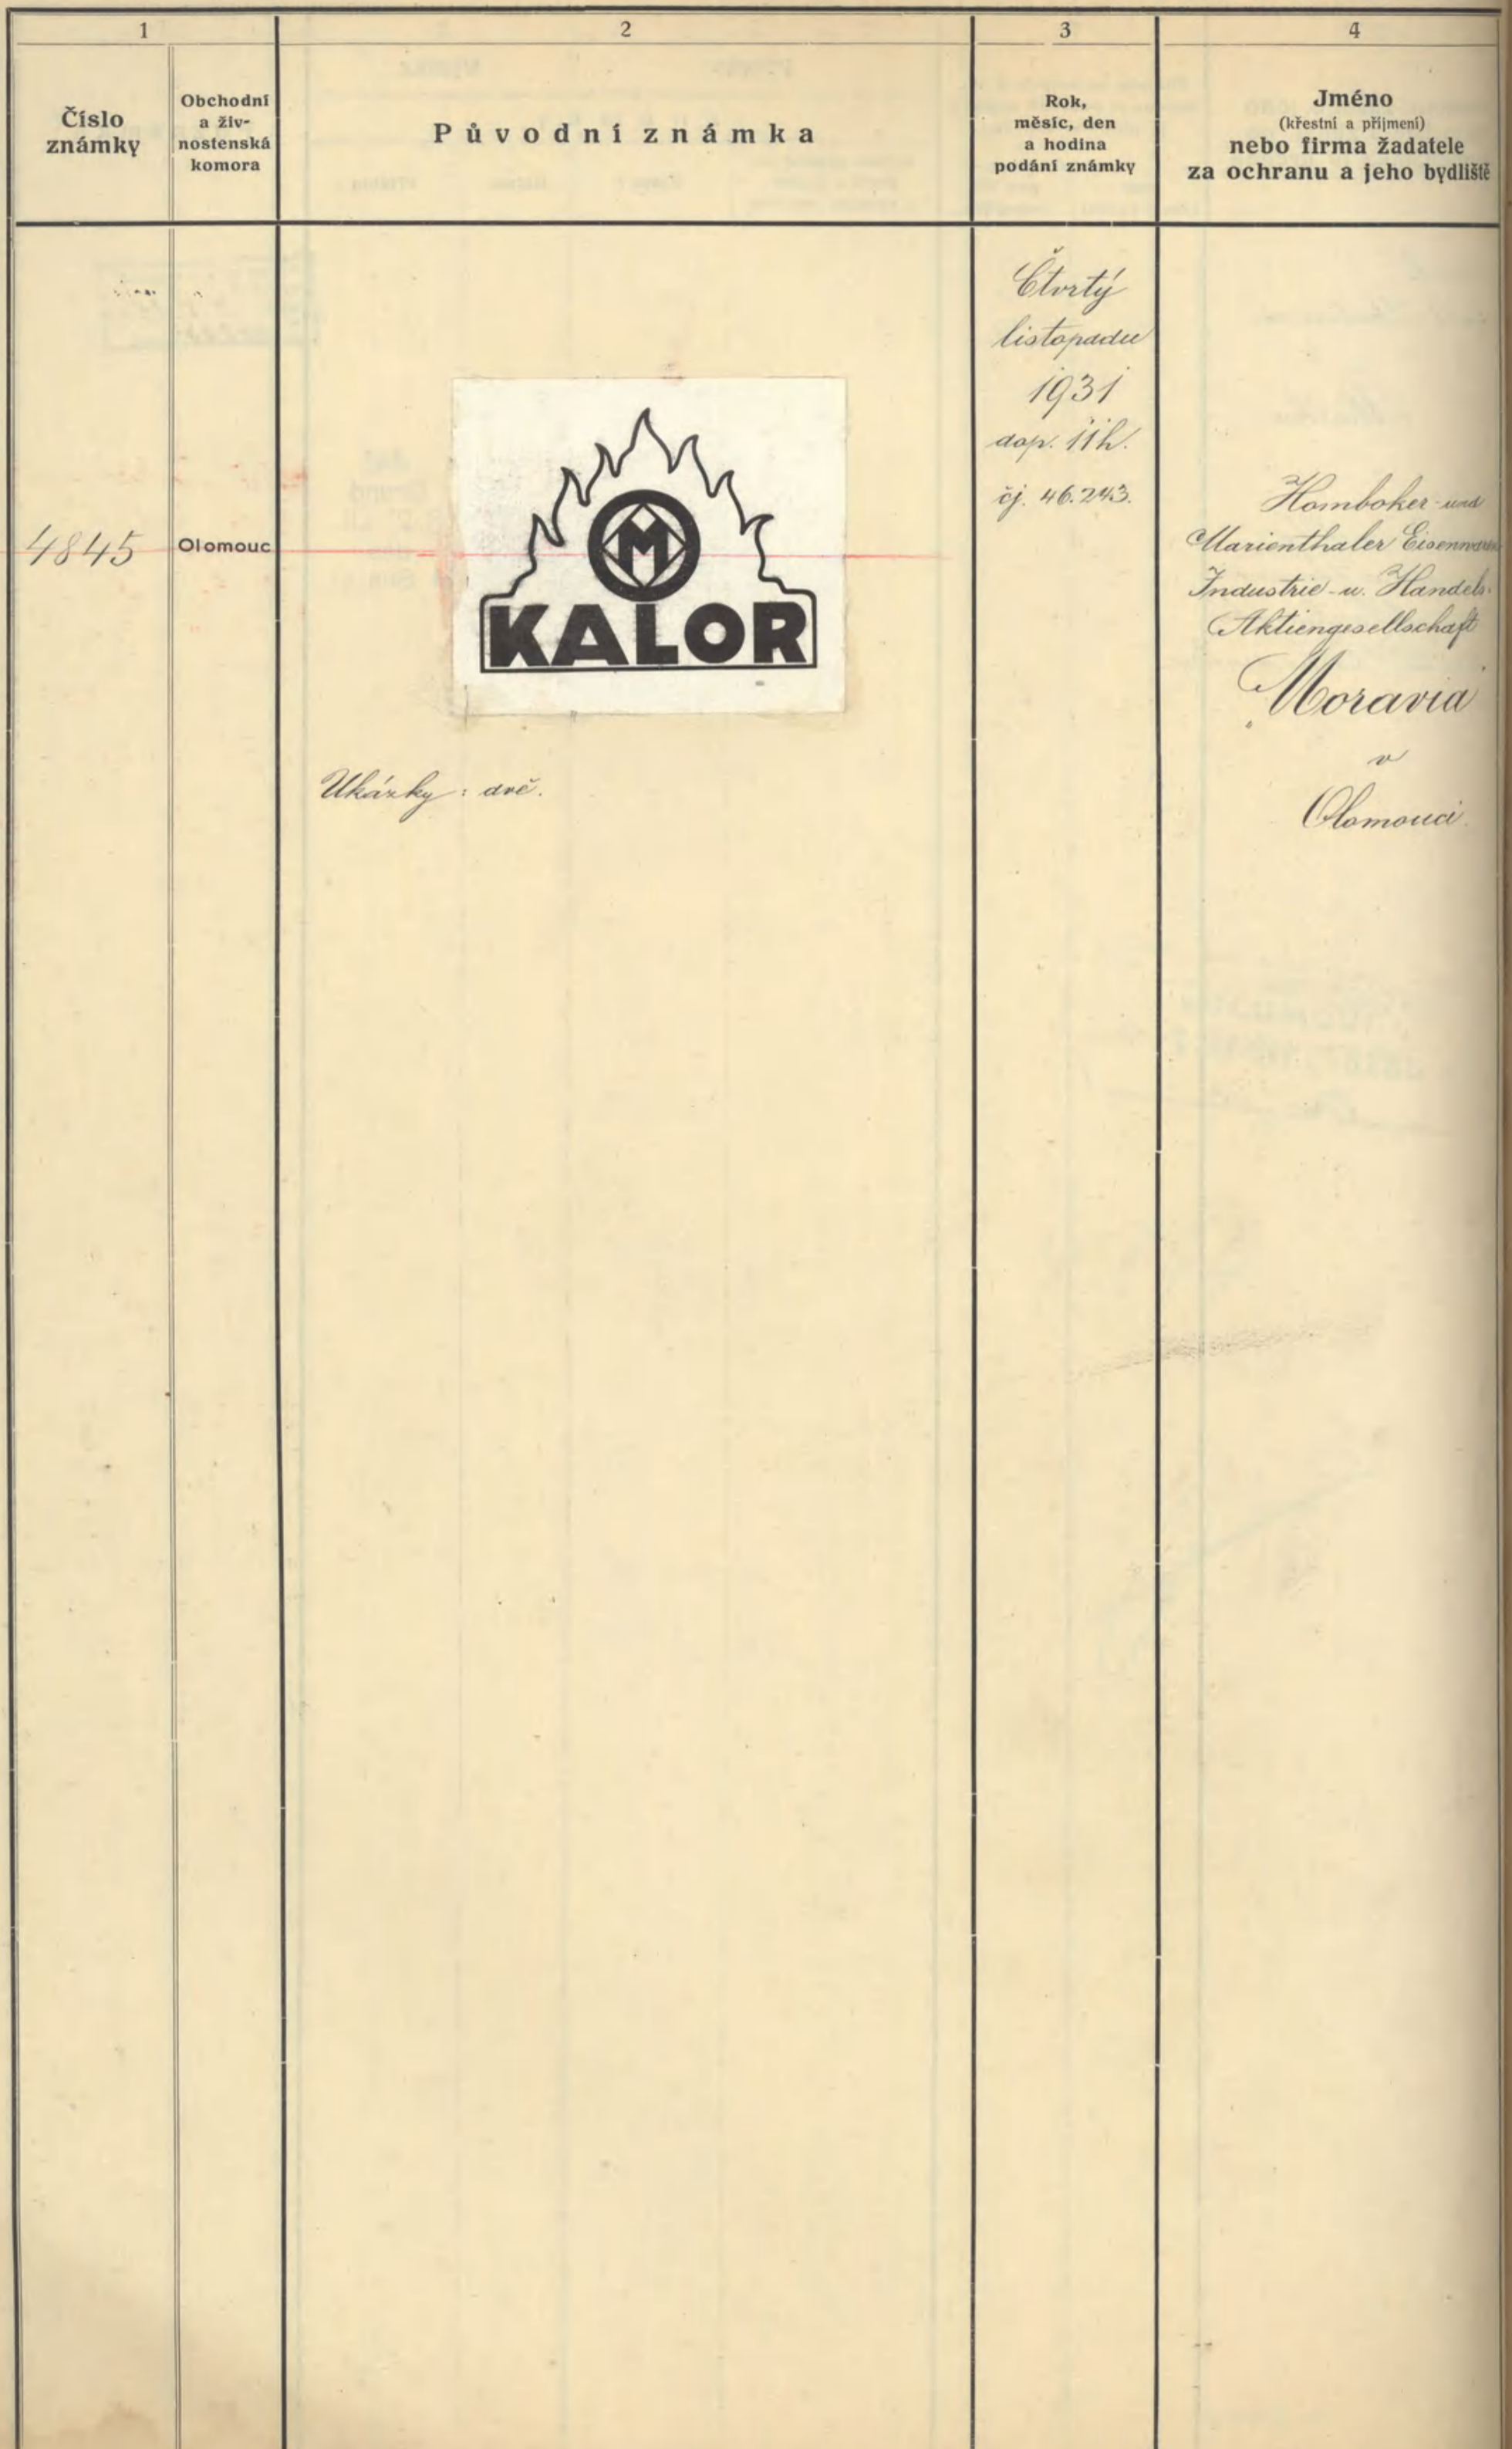 1
2
3
4
Číslo
známky
Obchodní
a živ-
nostenská
komora
Původní známka
Rok,
měsíc, den
a hodina
podání známky
Jméno
(křestní a příjmení)
nebo firma žadatele
za ochranu a jeho bydliště
4845
Olomouc
M
KALOR
Ukázky: dvě.
Čtvrtý
listopadu
1931
dop. 11h.
čj. 46.243.
Homboker- und
Marienthaler Eisenwaren
Industrie- u. Handels-
Aktiengesellschaft
Moravia
v
Olomouci.